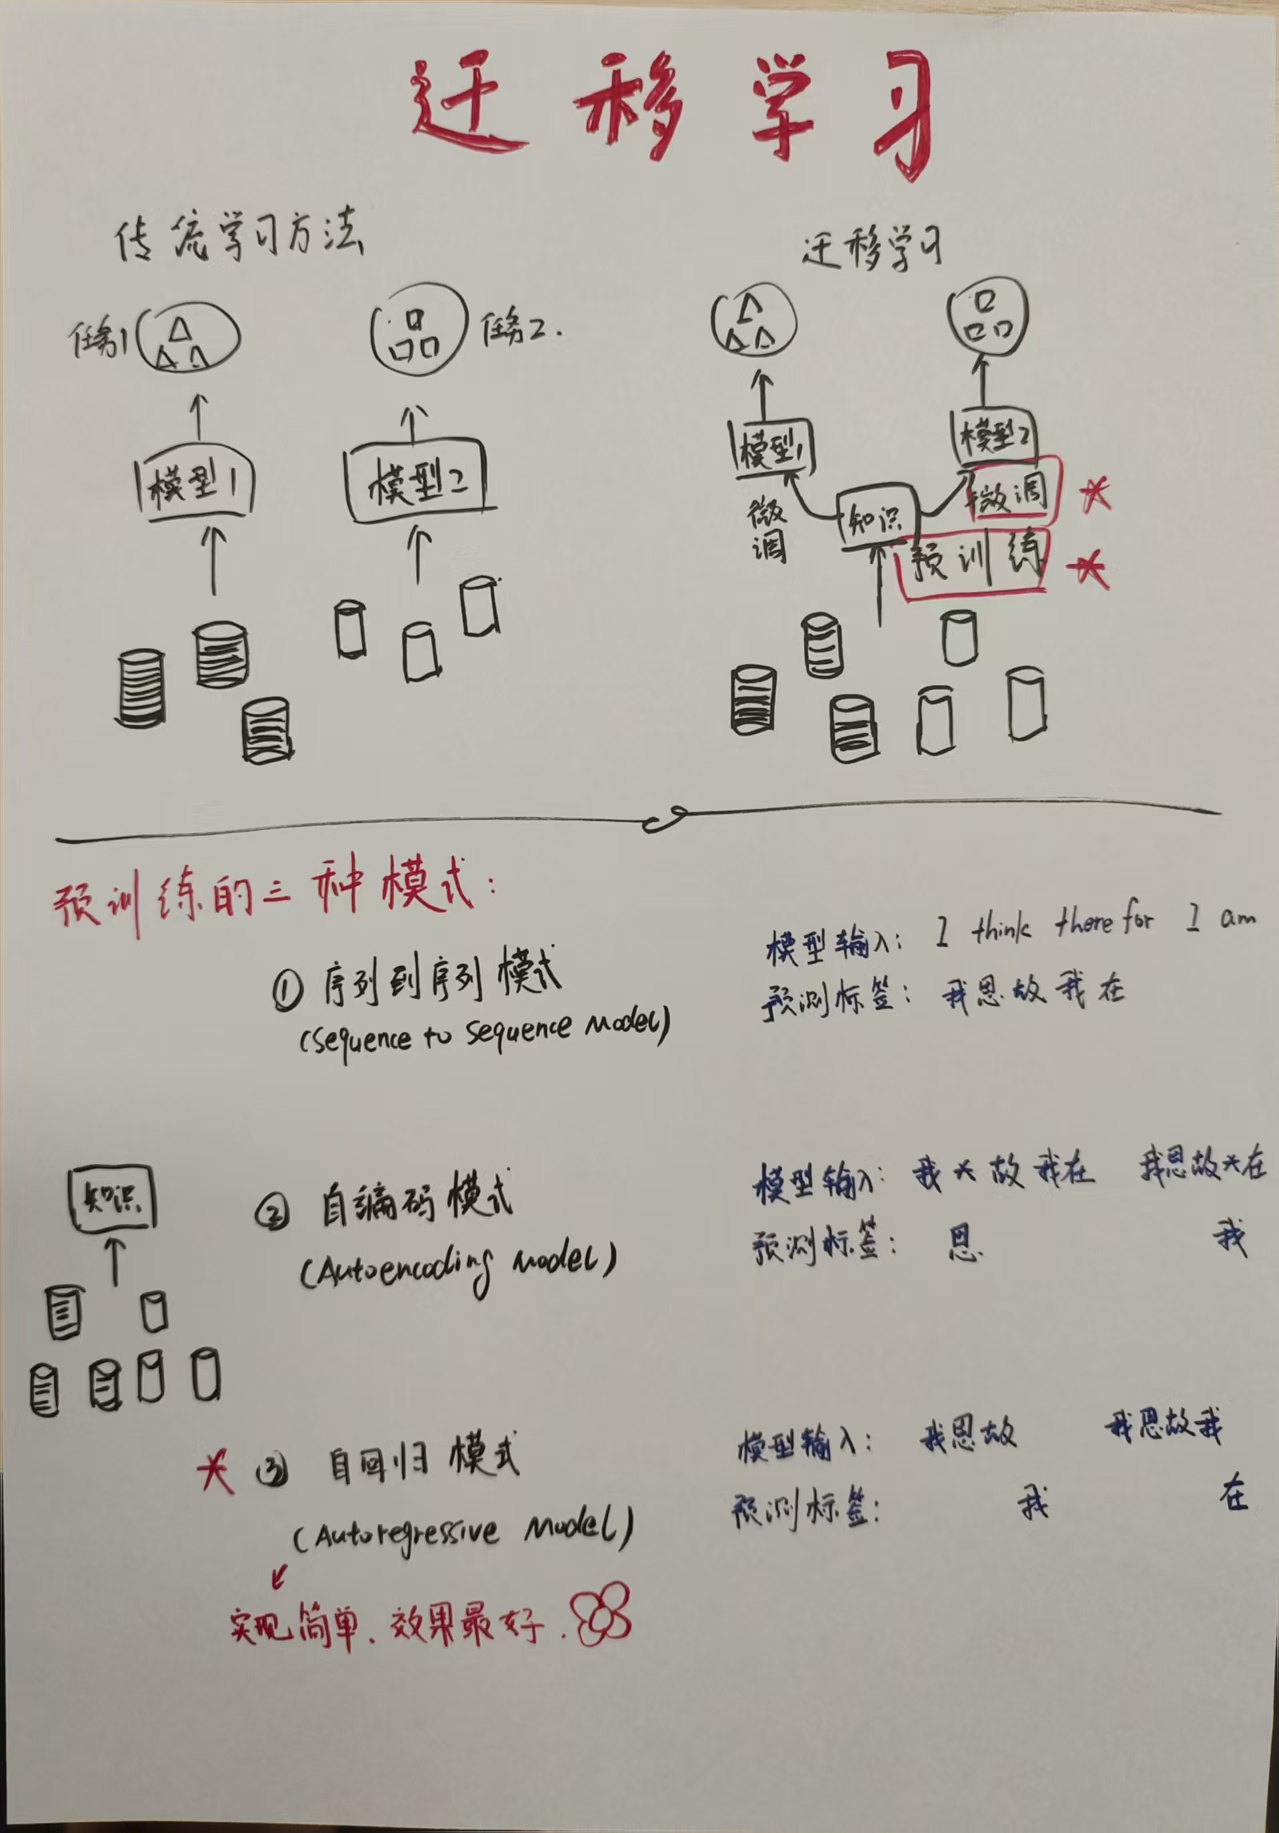 迁移学习
传统学习方法
迁移学习
任务1
任务2.
模型1
模型2
模型1
模型2
微调
知识
微调
预训练
预训练的三种模式:
① 序列到序列模式
(Sequence to Sequence Model)
模型输入: I think there for I am
预测标签: 我思故我在
知识
② 自编码模式
(Autoencoding Model)
模型输入: 我*故我在 我思故*在
预测标签: 思 我
③ 自回归模式
(Autoregressive Model)
模型输入: 我思故 我思故我
预测标签: 我 在
实现简单、效果最好.